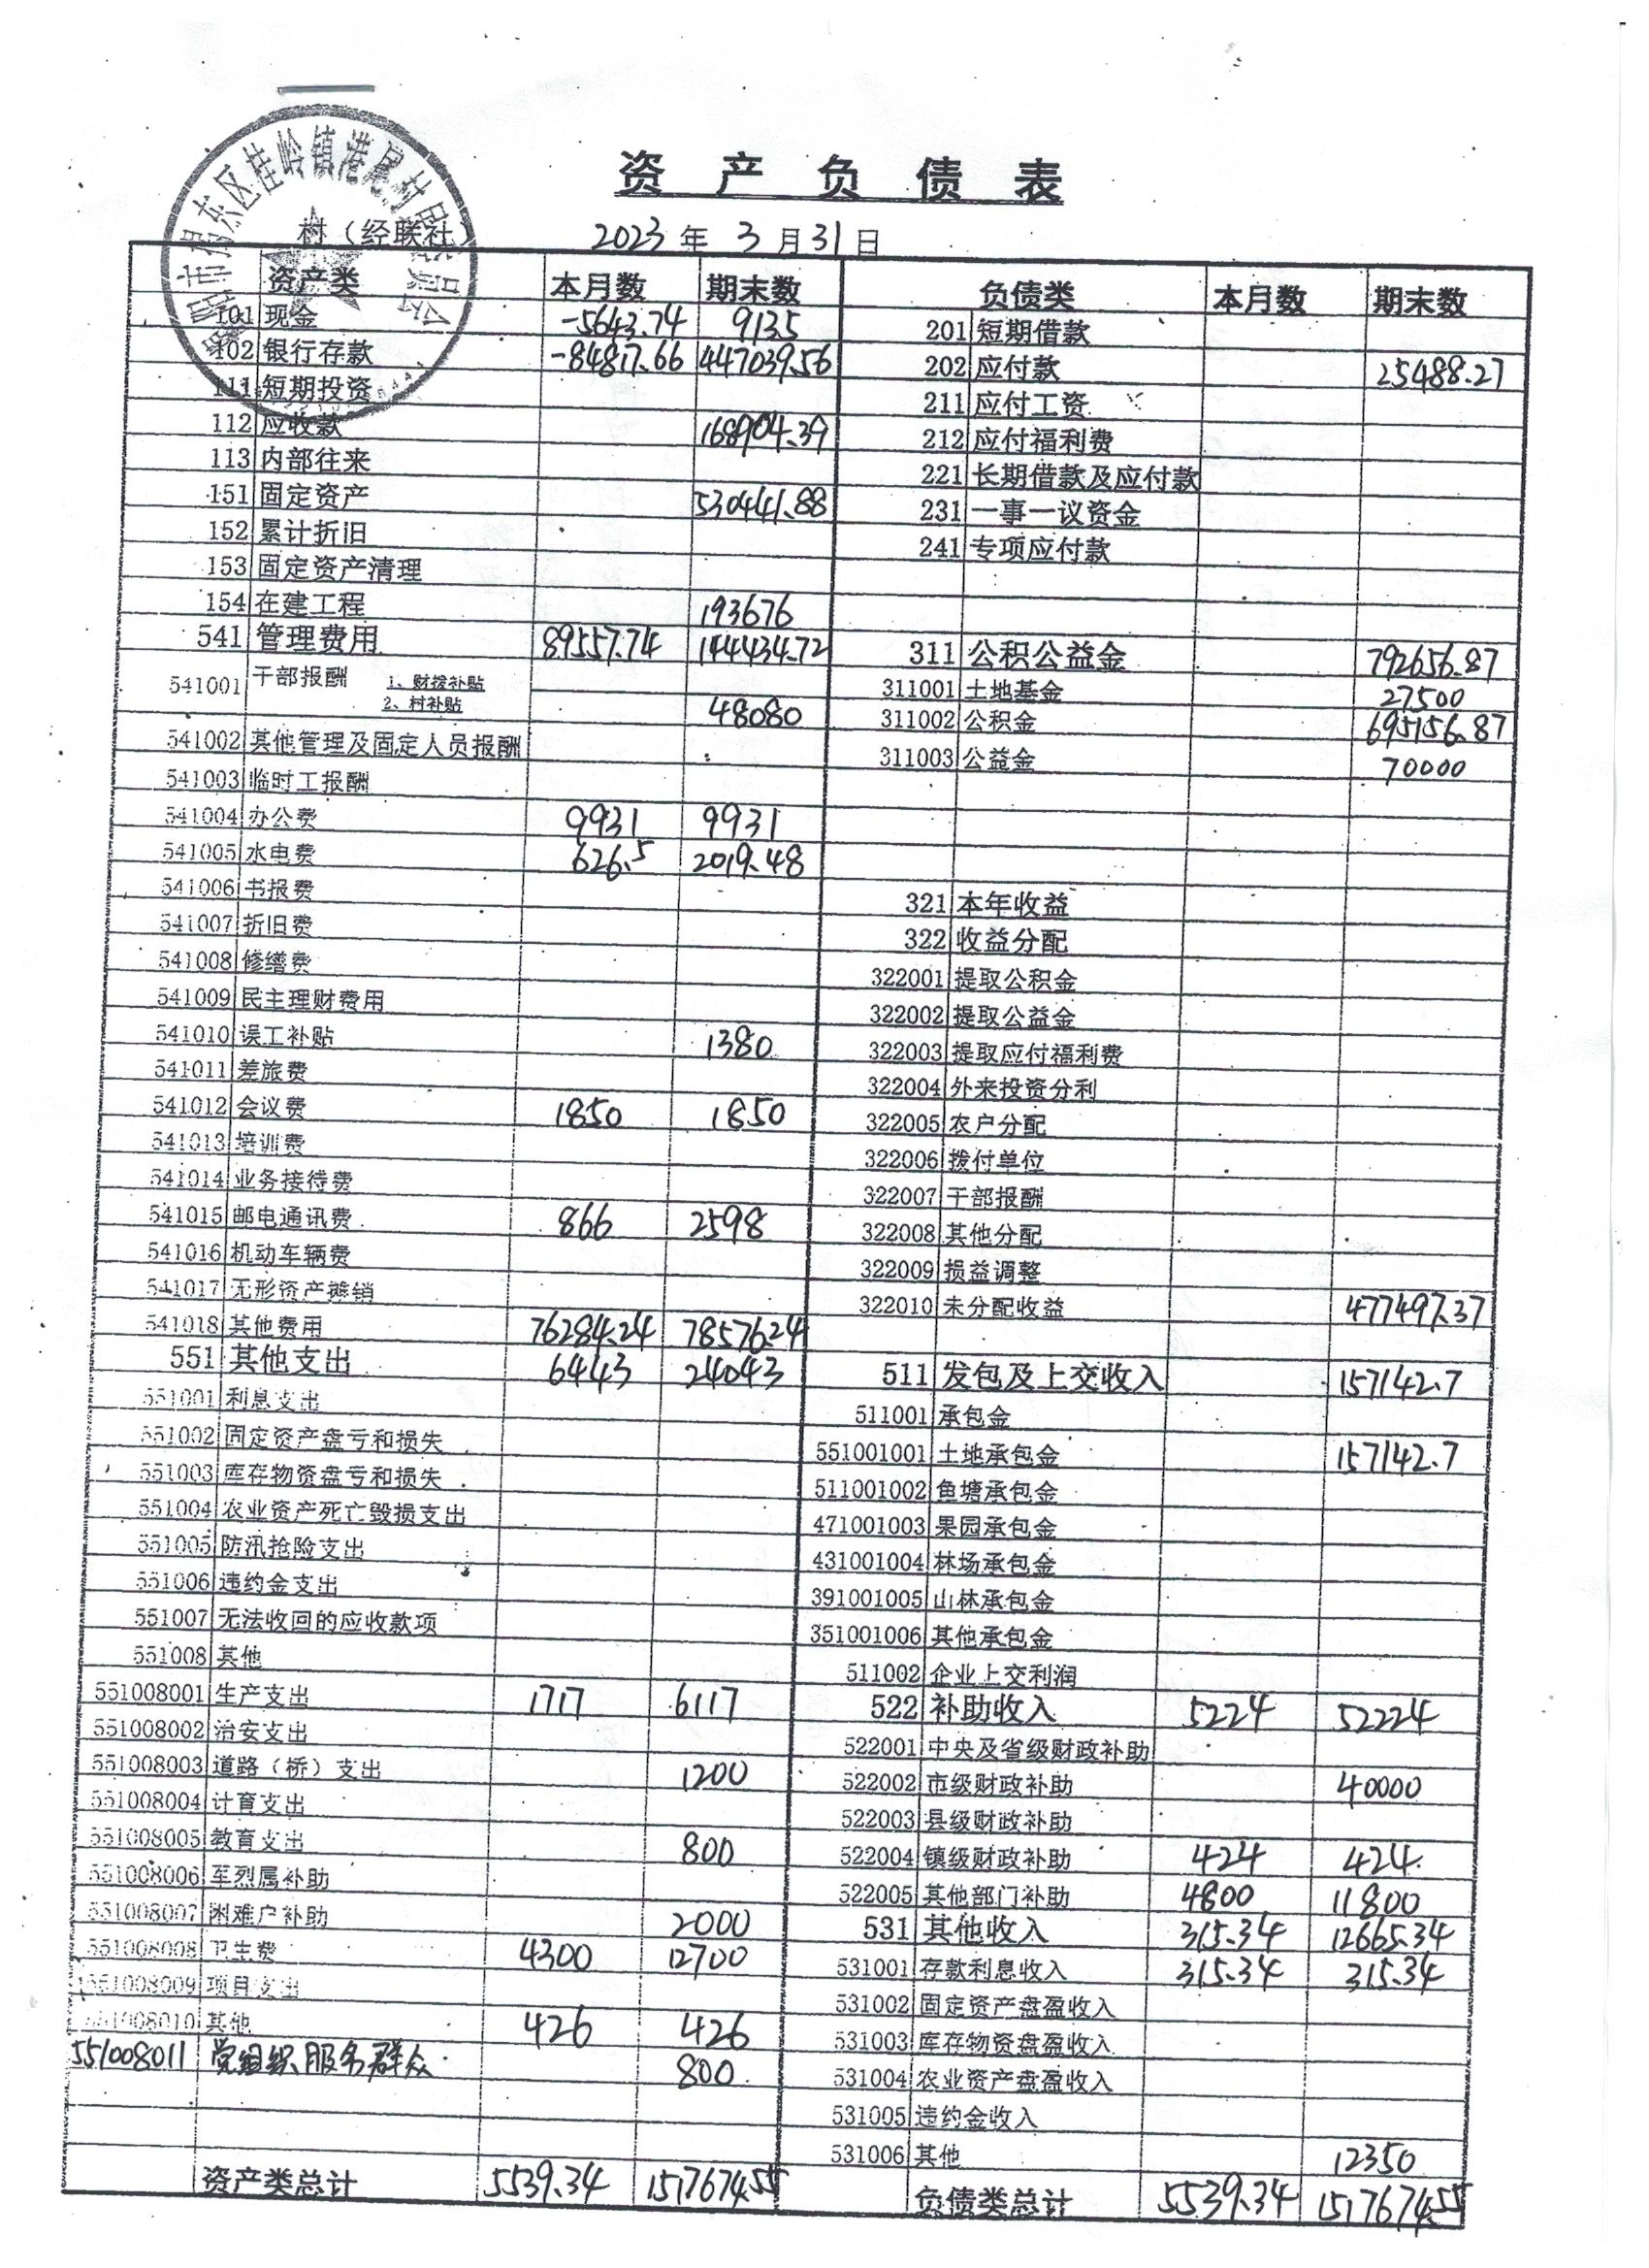 资产负债表
村（经联社）
2023年3月31日
资产类 本月数 期末数 负债类 本月数 期末数
101 现金 -5643.74 9135 201 短期借款
102 银行存款 -84817.66 447039.56 202 应付款 25488.27
111 短期投资 211 应付工资
112 应收款 168904.39 212 应付福利费
113 内部往来 221 长期借款及应付款
151 固定资产 530441.88 231 一事一议资金
152 累计折旧 241 专项应付款
153 固定资产清理
154 在建工程 193676
541 管理费用 89557.74 144434.72 311 公积公益金 792656.87
541001 干部报酬 1、财拨补贴 311001 土地基金 27500
2、村补贴 48080 311002 公积金 695156.87
541002 其他管理及固定人员报酬 311003 公益金 70000
541003 临时工报酬
541004 办公费 9931 9931
541005 水电费 626.5 2019.48
541006 书报费 321 本年收益
541007 折旧费 322 收益分配
541008 修缮费 322001 提取公积金
541009 民主理财费用 322002 提取公益金
541010 误工补贴 1380 322003 提取应付福利费
541011 差旅费 322004 外来投资分利
541012 会议费 1850 1850 322005 农户分配
541013 培训费 322006 拨付单位
541014 业务接待费 322007 干部报酬
541015 邮电通讯费 866 2598 322008 其他分配
541016 机动车辆费 322009 损益调整
541017 无形资产摊销 322010 未分配收益 477497.37
541018 其他费用 76284.24 78576.24
551 其他支出 6443 24043 511 发包及上交收入 157142.7
551001 利息支出 511001 承包金
551002 固定资产盘亏和损失 551001001 土地承包金 157142.7
551003 库存物资盘亏和损失 511001002 鱼塘承包金
551004 农业资产死亡毁损支出 471001003 果园承包金
551005 防汛抢险支出 431001004 林场承包金
551006 违约金支出 391001005 山林承包金
551007 无法收回的应收款项 351001006 其他承包金
551008 其他 511002 企业上交利润
551008001 生产支出 1717 6117 522 补助收入 5224 52224
551008002 治安支出 522001 中央及省级财政补助
551008003 道路（桥）支出 1200 522002 市级财政补助 40000
551008004 计育支出 522003 县级财政补助
551008005 教育支出 800 522004 镇级财政补助 424 424
551008006 军烈属补助 522005 其他部门补助 4800 11800
551008007 困难户补助 2000 531 其他收入 315.34 12665.34
551008008 卫生费 4300 12700 531001 存款利息收入 315.34 315.34
551008009 项目支出 531002 固定资产盘盈收入
551008010 其他 426 426 531003 库存物资盘盈收入
551008011 党组织服务群众 800 531004 农业资产盘盈收入
531005 违约金收入
531006 其他 12350
资产类总计 5539.34 1517674.55 负债类总计 5539.34 1517674.55